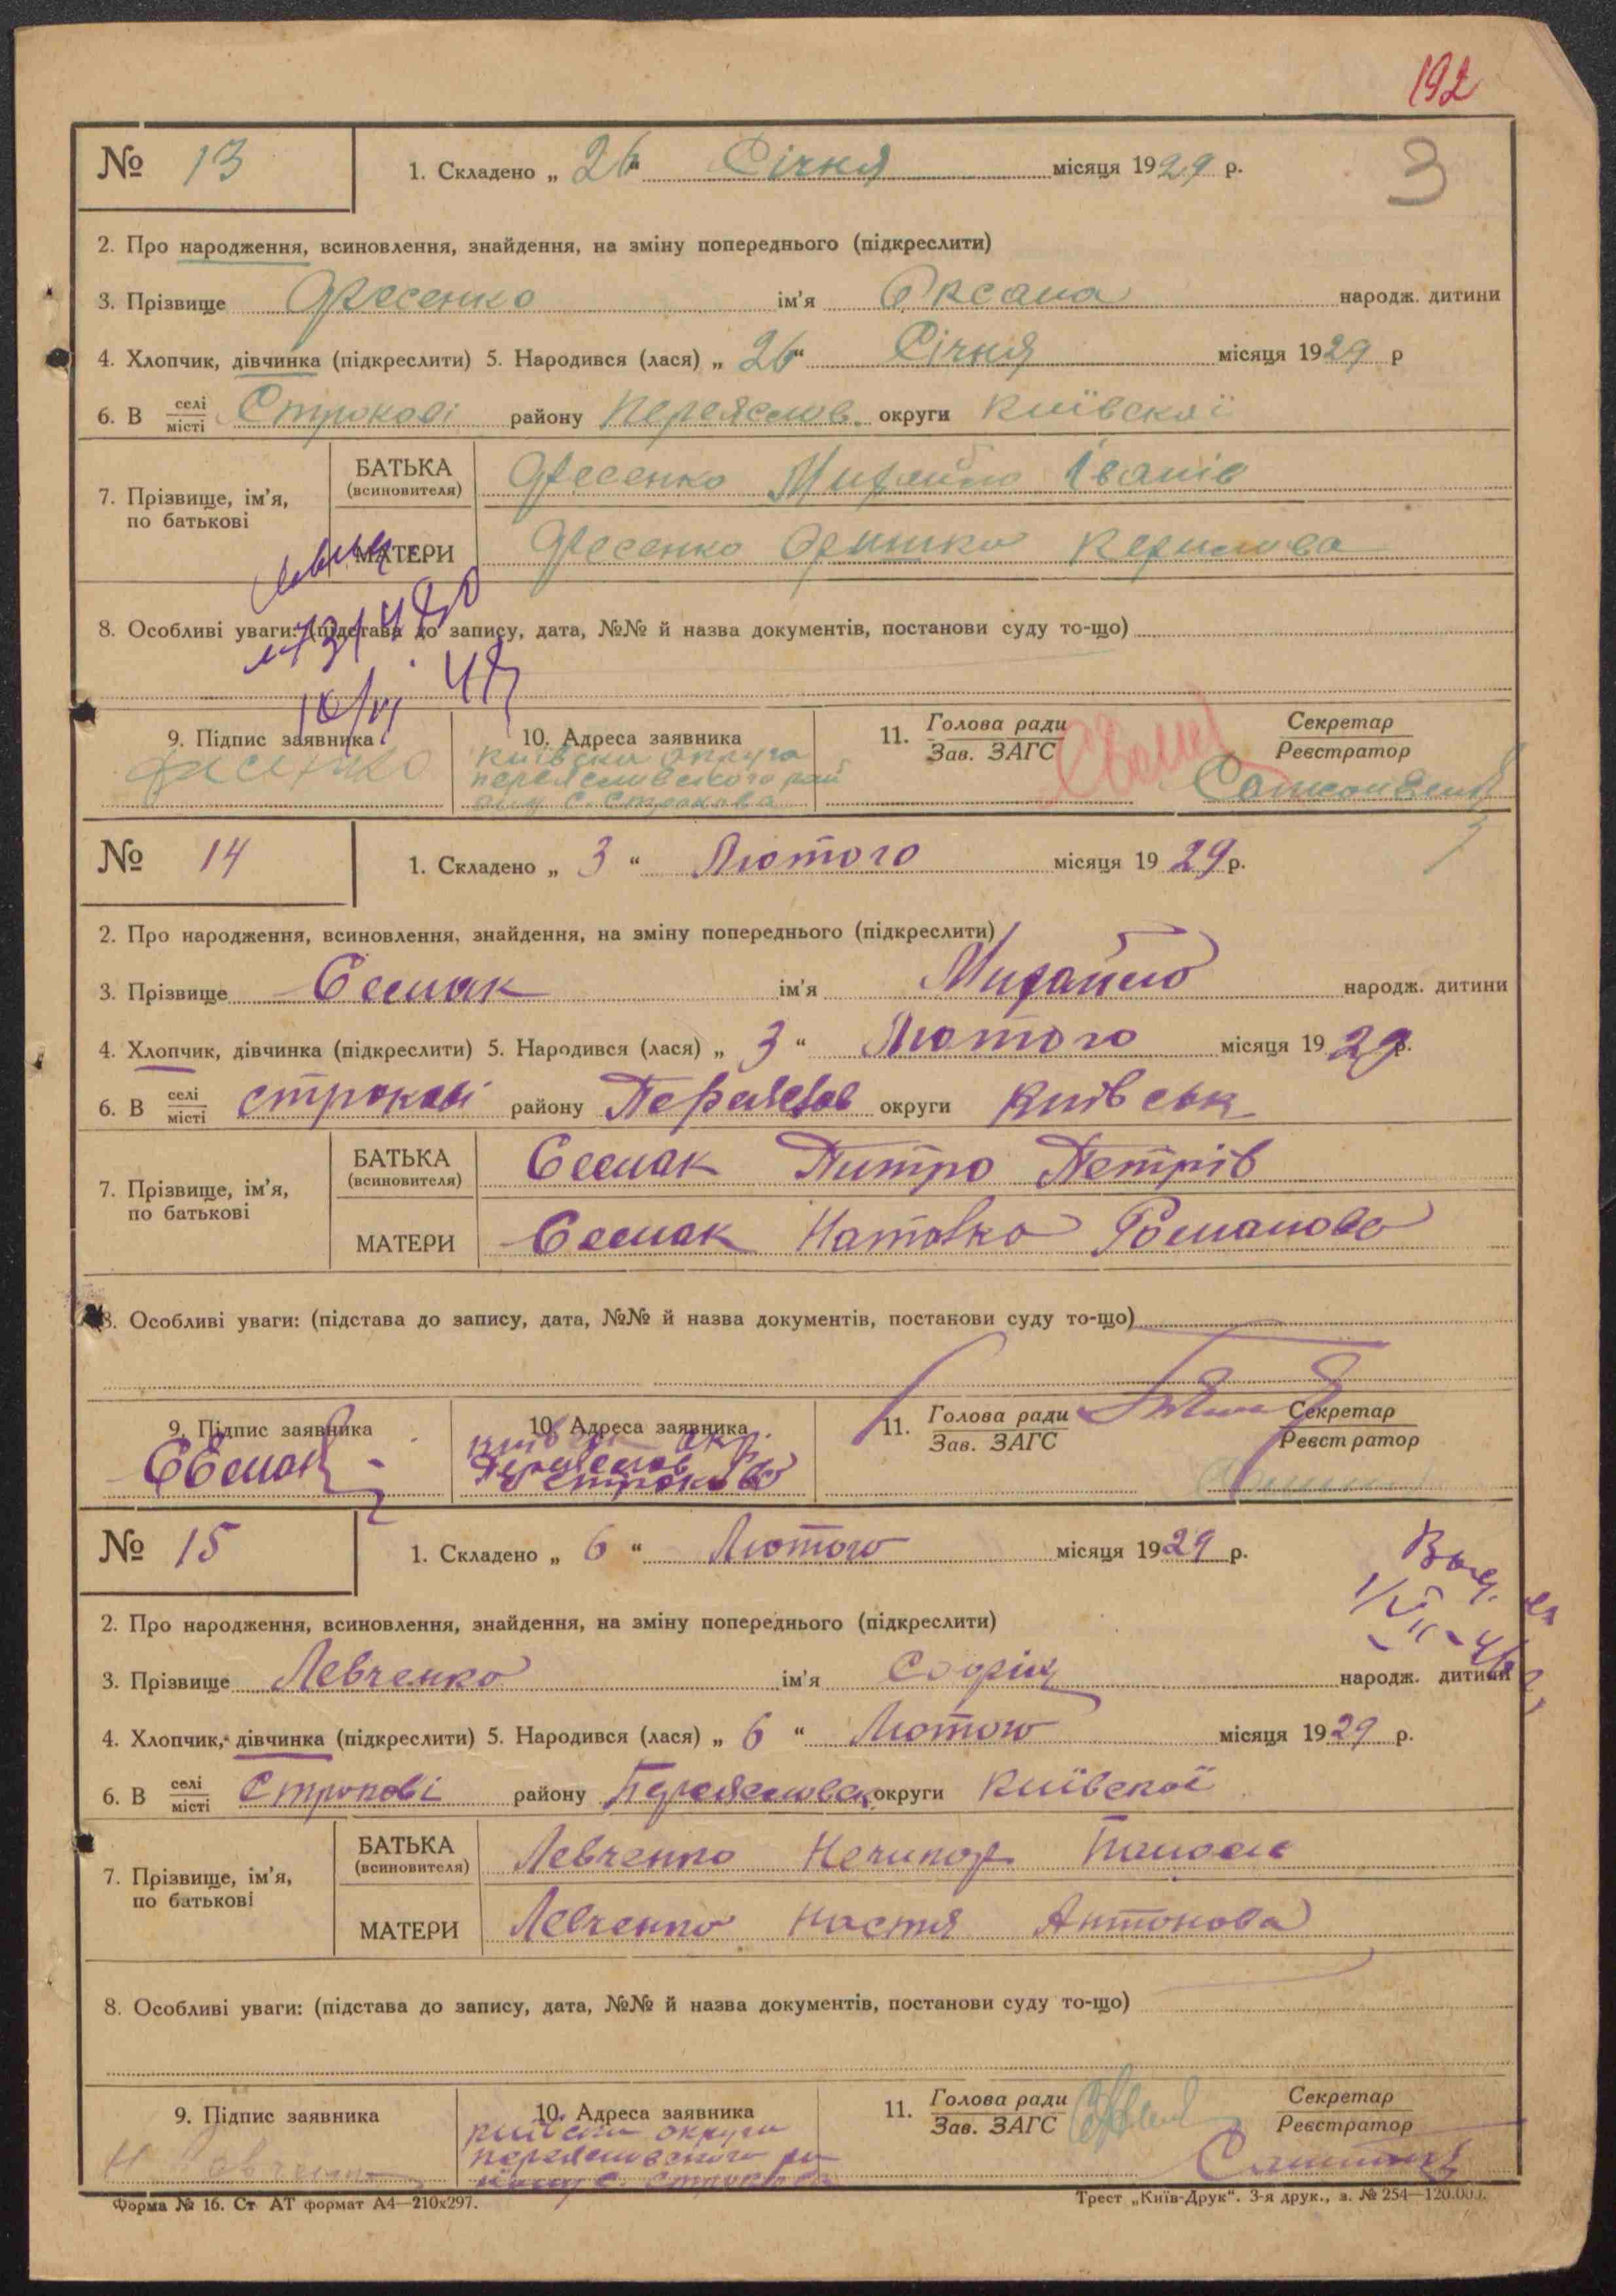 192
№ 13 1. Складено „ 26 “ Січня місяця 1929 р. 3
2. Про народження, всиновлення, знайдення, на зміну попереднього (підкреслити)
3. Прізвище Фесенко ім'я Оксана народж. дитини
4. Хлопчик, дівчинка (підкреслити) 5. Народився (лася) „ 26 “ Січня місяця 1929 р
6. В селі/місті Строкові району Переяслов. округи Київскої
7. Прізвище, ім'я, по батькові
БАТЬКА (всиновителя) Фесенко Михайло Іванів
МАТЕРИ Фесенко Оришка Керилова
8. Особливі уваги: (підстава до запису, дата, №№ й назва документів, постанови суду то-що)
9. Підпис заявника 10. Адреса заявника 11. Голова ради/Зав. ЗАГС Секретар/Реєстратор
Фесенко
Київска округа
переясловского рай
ону с. Строкова
№ 14 1. Складено „ 3 “ Лютого місяця 1929 р.
2. Про народження, всиновлення, знайдення, на зміну попереднього (підкреслити)
3. Прізвище Єсмак ім'я Михайло народж. дитини
4. Хлопчик, дівчинка (підкреслити) 5. Народився (лася) „ 3 “ Лютого місяця 1929 р.
6. В селі/місті строкові району Переяслов округи Київськ
7. Прізвище, ім'я, по батькові
БАТЬКА (всиновителя) Єсмак Питро Петрів
МАТЕРИ Єсмак Наталка Романова
8. Особливі уваги: (підстава до запису, дата, №№ й назва документів, постанови суду то-що)
9. Підпис заявника 10. Адреса заявника 11. Голова ради/Зав. ЗАГС Секретар/Реєстратор
№ 15 1. Складено „ 6 “ Лютого місяця 1929 р.
2. Про народження, всиновлення, знайдення, на зміну попереднього (підкреслити)
3. Прізвище Левченко ім'я Софія народж. дитини
4. Хлопчик, дівчинка (підкреслити) 5. Народився (лася) „ 6 “ Лютого місяця 1929 р.
6. В селі/місті Строкові району Переясловск округи Київскої
7. Прізвище, ім'я, по батькові
БАТЬКА (всиновителя) Левченко Нечипор
МАТЕРИ Левченко Настя Антонова
8. Особливі уваги: (підстава до запису, дата, №№ й назва документів, постанови суду то-що)
9. Підпис заявника 10. Адреса заявника 11. Голова ради/Зав. ЗАГС Секретар/Реєстратор
Київска округа
переясловского ра
йону с. Строкова
Форма № 16. Ст АТ формат А4—210х297. Трест „Київ-Друк“. 3-я друк., з. № 254—120.000.